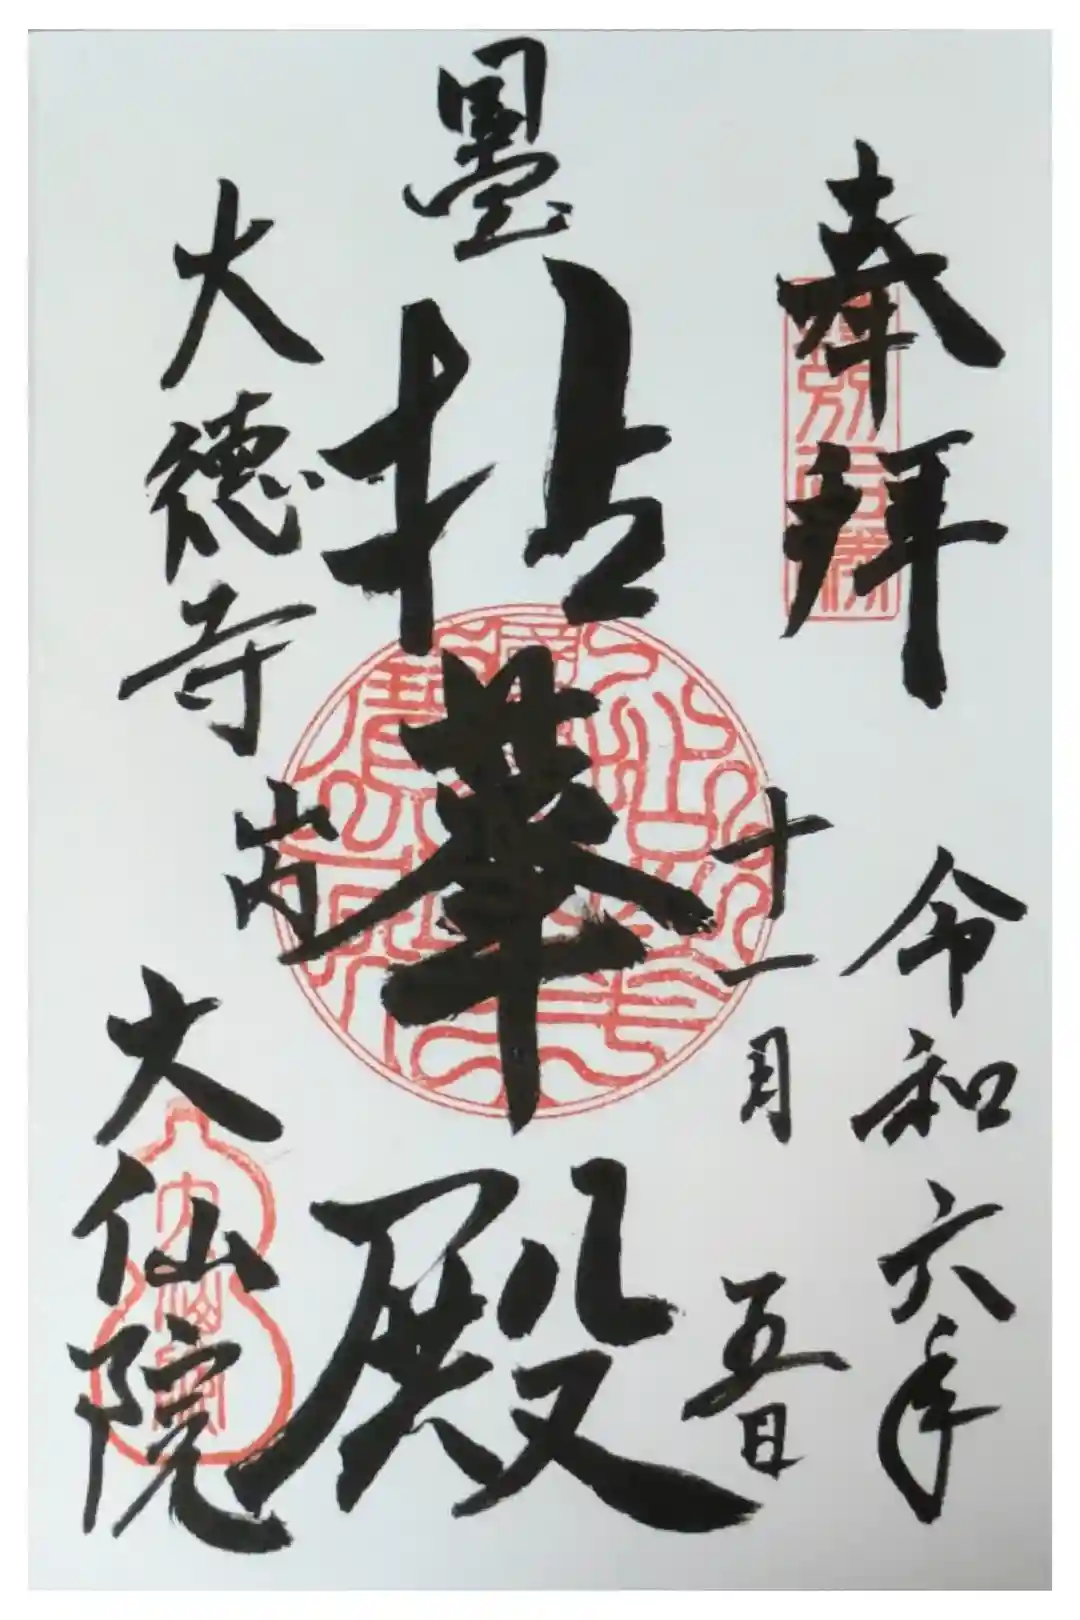 奉拜
令和六年
十一月五日
墨
拈華殿
大徳寺
山内
大仙院